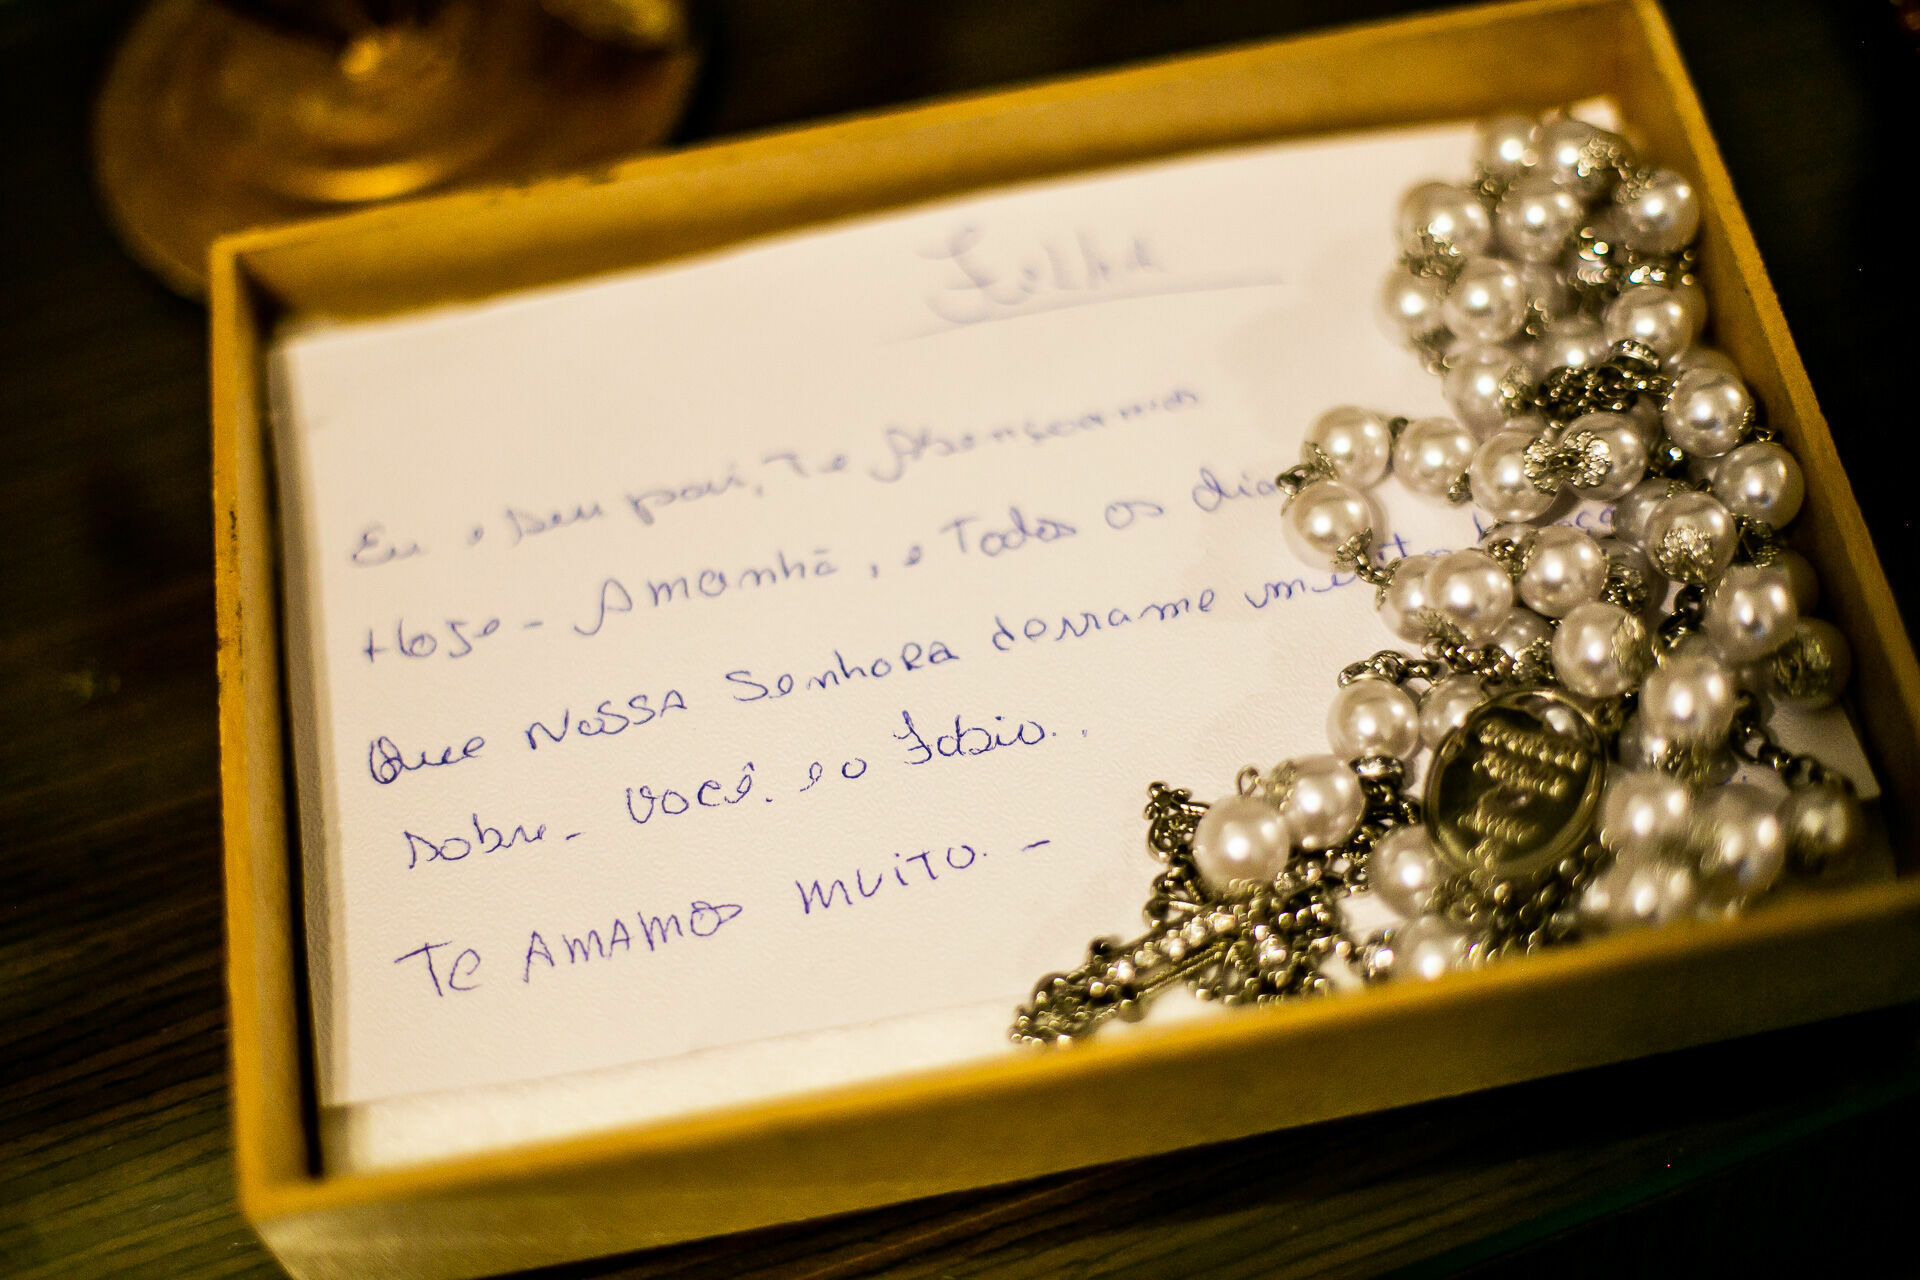 Filha
Eu e seu pai, Te Abençoamos
Hoje - Amanhã, e Todos os dia
Que Nossa Senhora derrame
sobre - você. e o Fabio.
Te AMAMOS MUITO. -